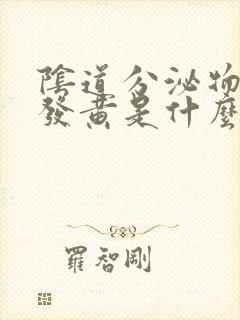 陰道分泌物
發黃是什麼
羅智剛